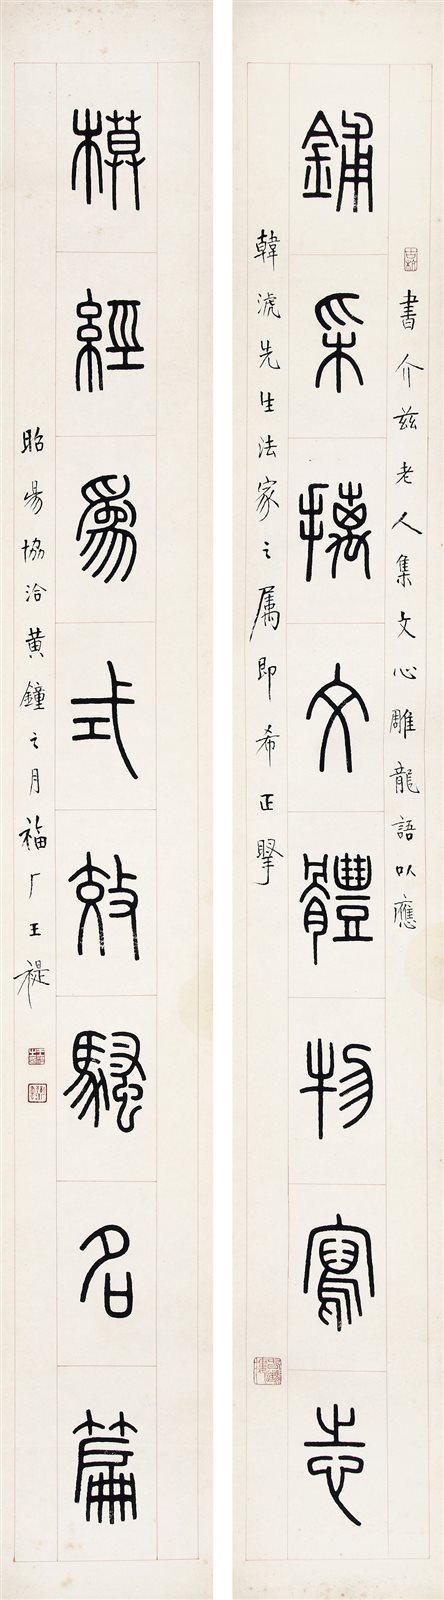 鋪采摛文體物寫志
書介茲老人集文心雕龍語以應
韓淲先生法家之屬即希正掔
模經爲式效騷名篇
昭昜協洽黃鐘之月福厂王禔